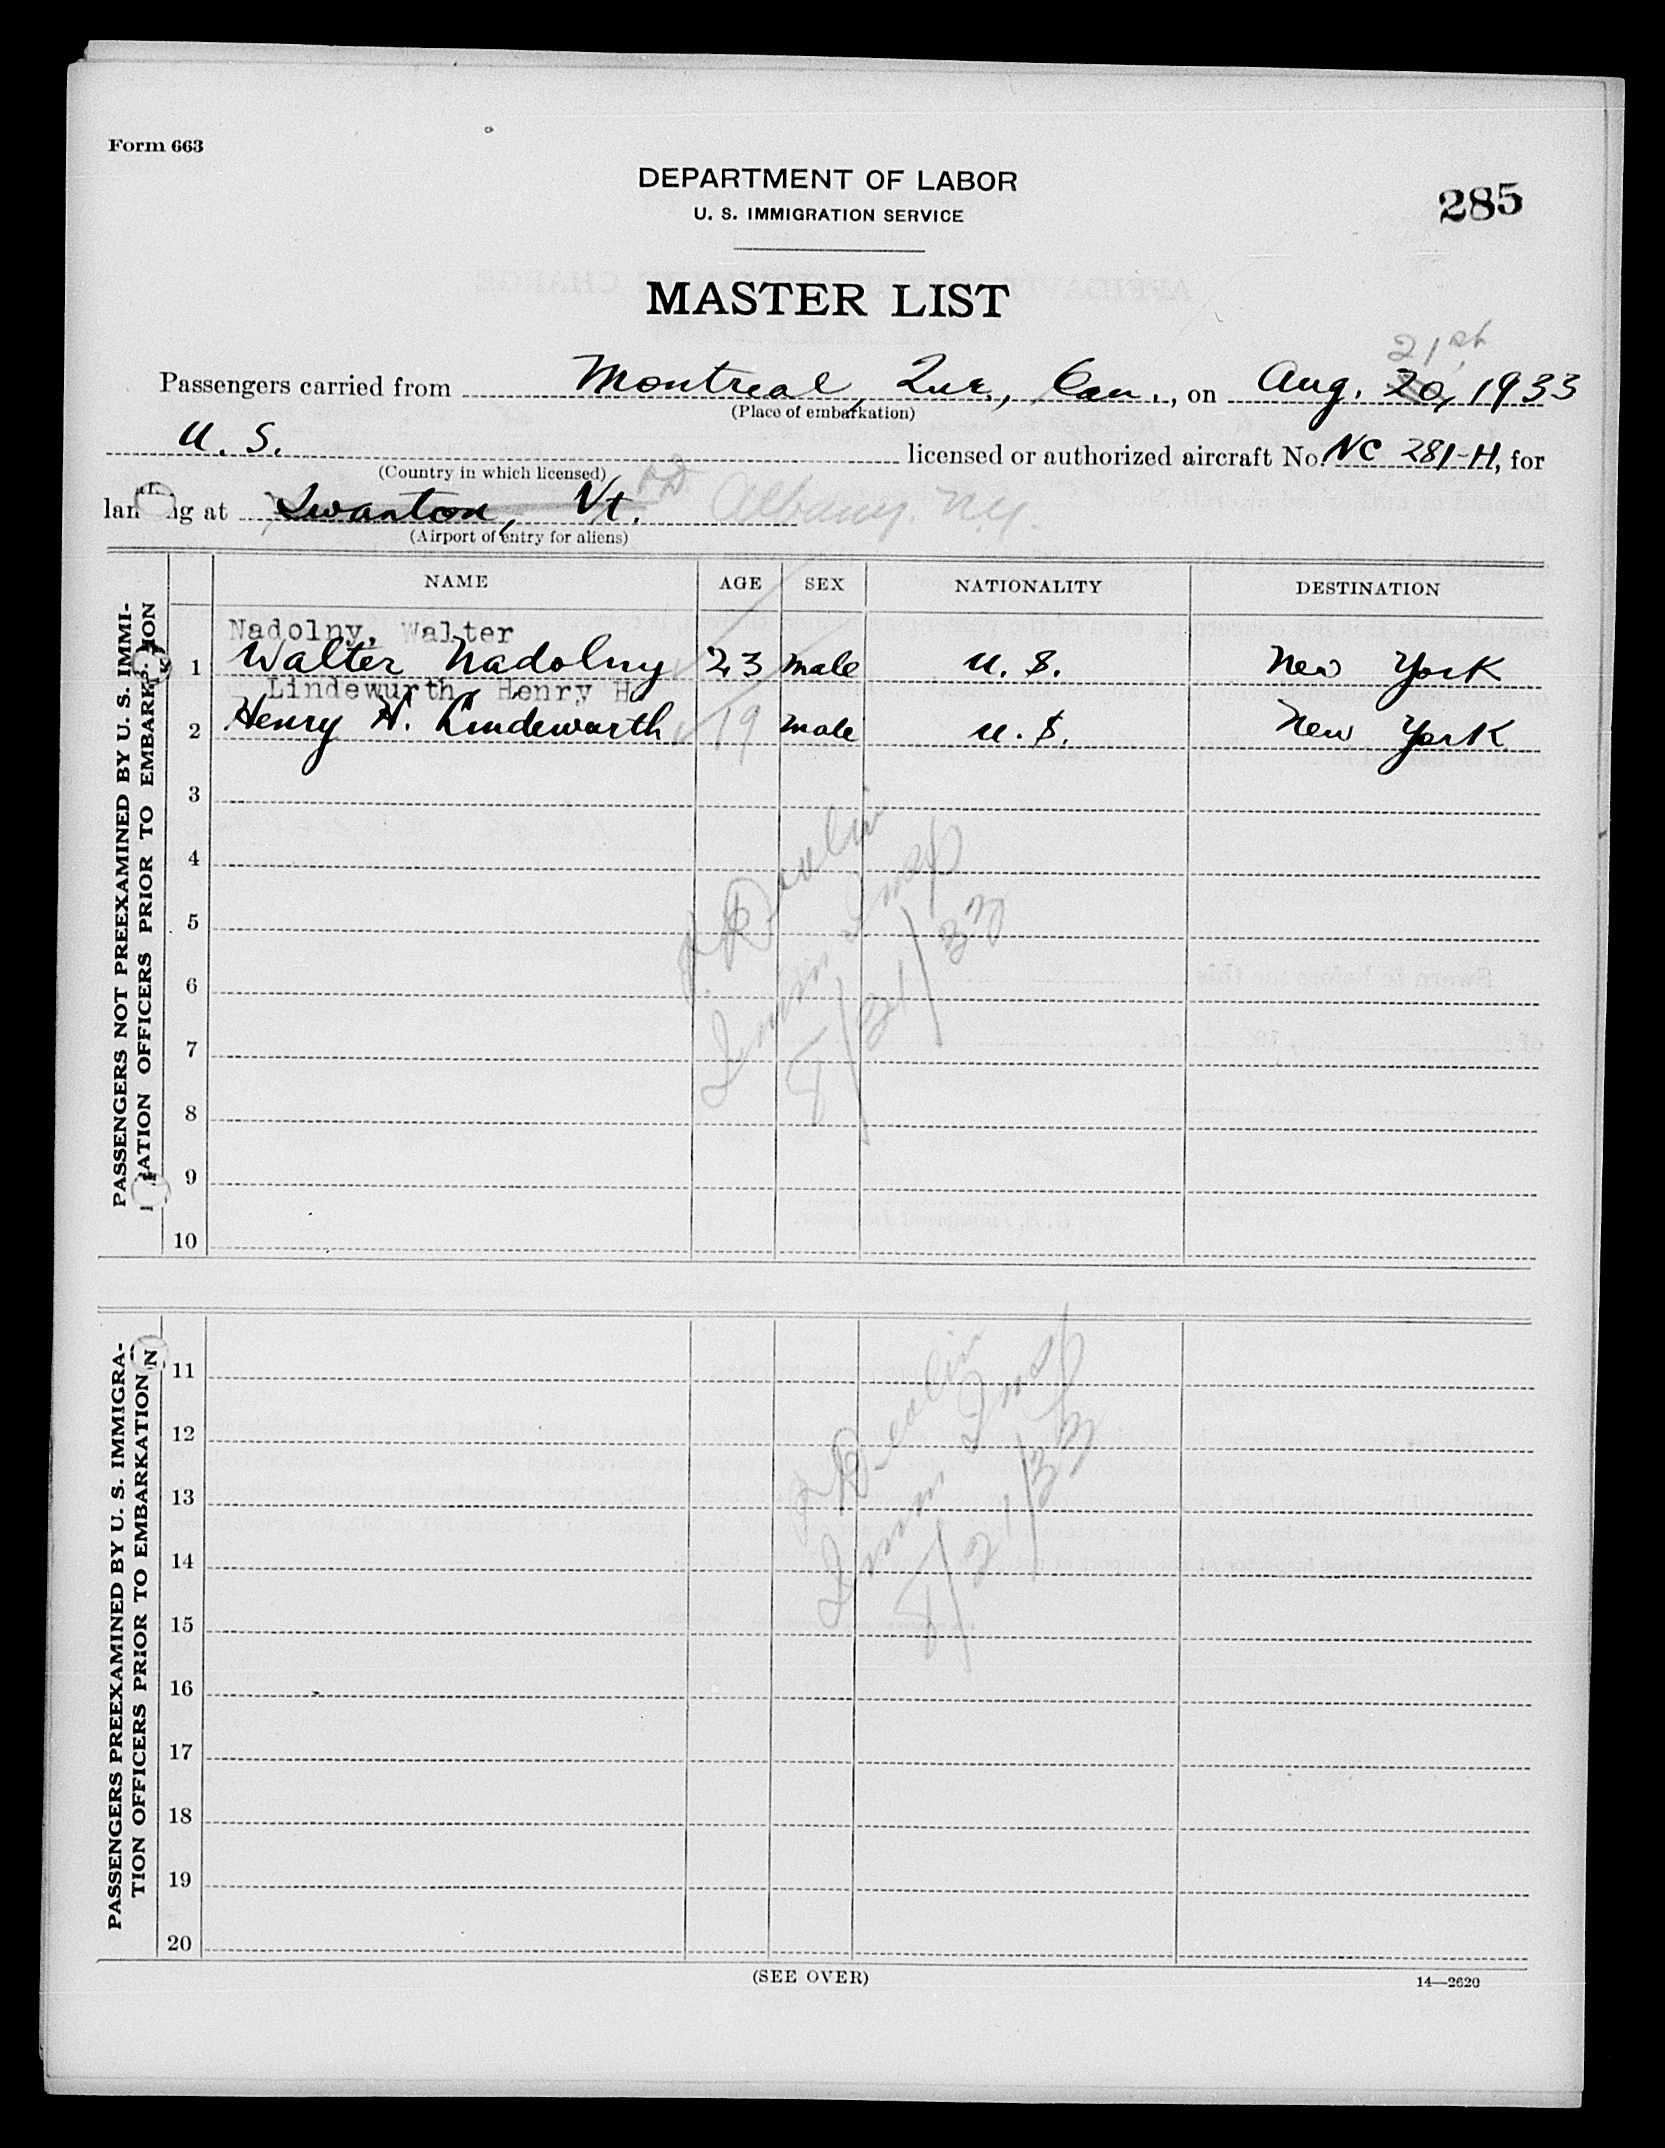 Form 663
DEPARTMENT OF LABOR
U. S. IMMIGRATION SERVICE
285
MASTER LIST
21st
Passengers carried from Montreal, Que., Can., on Aug. 20, 1933
(Place of embarkation)
U. S. licensed or authorized aircraft No. NC 281-H, for
(Country in which licensed)
landing at Swanton, Vt. Albany. N.Y.
(Airport of entry for aliens)
NAME AGE SEX NATIONALITY DESTINATION
PASSENGERS NOT PREEXAMINED BY U. S. IMMI-
GRATION OFFICERS PRIOR TO EMBARKATION
Nadolny, Walter
1 Walter Nadolny 23 male U. S. New York
Lindewurth, Henry H
2 Henry H. Lindewurth 19 male U. S. New York
3
4
5
6
7
8
9
10
Devlin
Immn Insp
8/21/33
PASSENGERS PREEXAMINED BY U. S. IMMIGRA-
TION OFFICERS PRIOR TO EMBARKATION
11
12
13
14
15
16
17
18
19
20
Devlin
Immn Insp
8/21/33
(SEE OVER)
14—2620